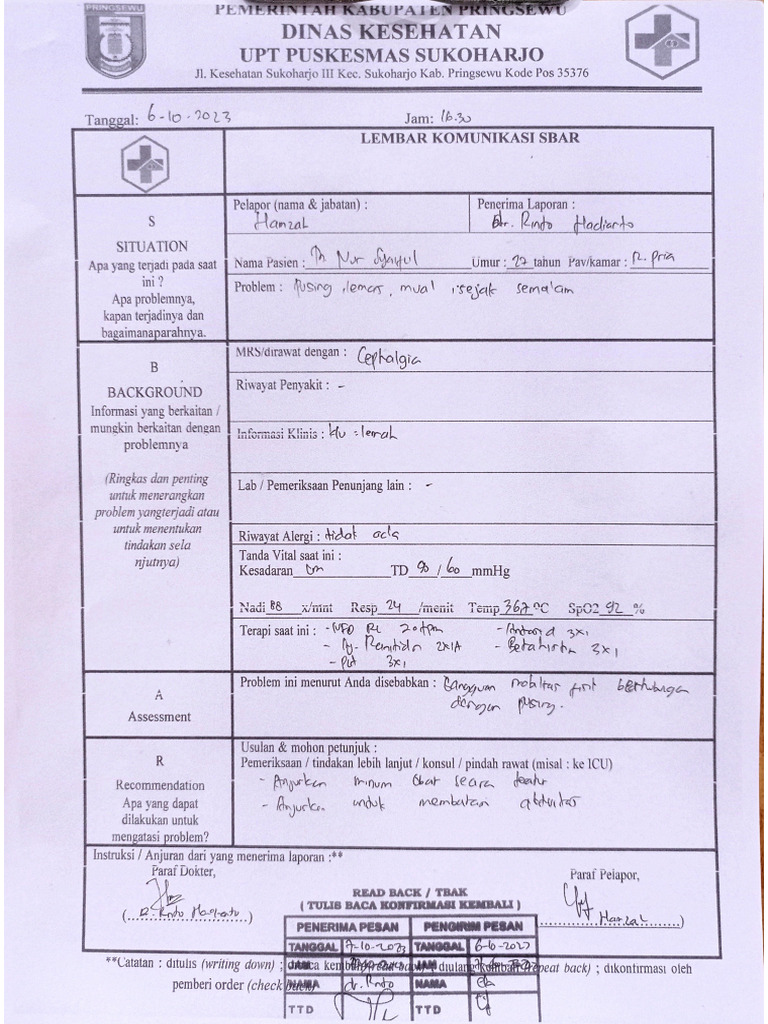 PRINGSEWU
PEMERINTAH KABUPATEN PRINGSEWU
DINAS KESEHATAN
UPT PUSKESMAS SUKOHARJO
Jl. Kesehatan Sukoharjo III Kec. Sukoharjo Kab. Pringsewu Kode Pos 35376
Tanggal: 6-10-2023 Jam: 16.30
LEMBAR KOMUNIKASI SBAR
S
SITUATION
Apa yang terjadi pada saat
ini ?
Apa problemnya,
kapan terjadinya dan
bagaimanaparahnya.
Pelapor (nama & jabatan) :
Hamzah
Penerima Laporan :
dr. Rinto Hadianto
Nama Pasien : Tn Nur Syaiful Umur : 27 tahun Pav/kamar : R. Pria
Problem : Pusing, lemas, mual sejak semalam
B
BACKGROUND
Informasi yang berkaitan /
mungkin berkaitan dengan
problemnya
(Ringkas dan penting
untuk menerangkan
problem yangterjadi atau
untuk menentukan
tindakan sela
njutnya)
MRS/dirawat dengan : Cephalgia
Riwayat Penyakit : -
Informasi Klinis : ku : lemah
Lab / Pemeriksaan Penunjang lain : -
Riwayat Alergi : tidak ada
Tanda Vital saat ini :
Kesadaran cm TD 90 / 60 mmHg
Nadi 88 x/mnt Resp 24 /menit Temp 36,7 °C SpO2 92 %
Terapi saat ini : - IVFD RL 20 tpm - Antasid 3x1
- Inj. Ranitidin 2x1A - Betahistin 3x1
- Pct 3x1
A
Assessment
Problem ini menurut Anda disebabkan : Gangguan mobilitas fisik berhubungan
dengan pusing.
R
Recommendation
Apa yang dapat
dilakukan untuk
mengatasi problem?
Usulan & mohon petunjuk :
Pemeriksaan / tindakan lebih lanjut / konsul / pindah rawat (misal : ke ICU)
- Anjurkan minum obat secara teratur
- Anjurkan untuk membatasi aktivitas
Instruksi / Anjuran dari yang menerima laporan :**
Paraf Dokter,
Paraf Pelapor,
(dr. Rinto Hadianto)
Hamzah)
READ BACK / TBAK
( TULIS BACA KONFIRMASI KEMBALI )
PENERIMA PESAN PENGIRIM PESAN
TANGGAL 7-10-2023 TANGGAL 6-10-2023
JAM JAM
NAMA dr. Rinto NAMA
TTD TTD
**Catatan : ditulis (writing down) ; dibaca kembali (read back) ; diulang kembali (repeat back) ; dikonfirmasi oleh
pemberi order (check back)